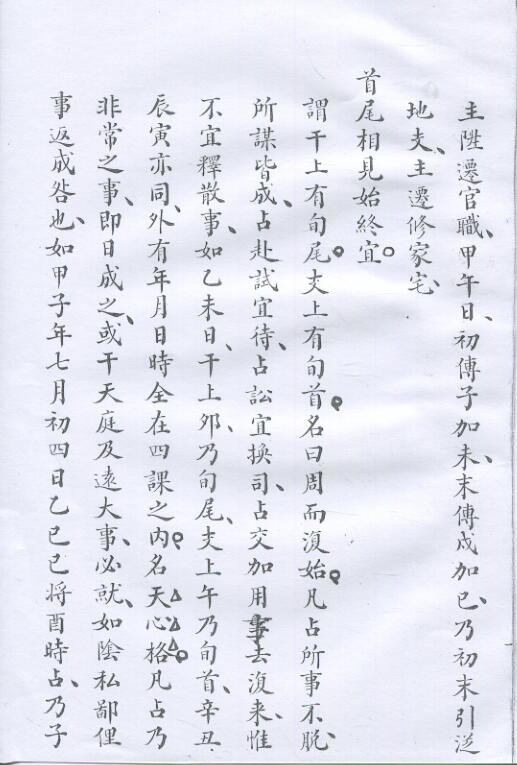 主陞遷官職、甲午日、初傳子加未、末傳戍加巳、乃初末引從
地支、主遷修家宅、
首尾相見始終宜。
謂干上有旬尾。支上有旬首。名曰周而復始。凡占所事不脫、
所謀皆成、占赴試宜待、占訟宜換司、占交加用事去復来、惟
不宜釋散事、如乙未日、干上夘、乃旬尾、支上午乃旬首、辛丑
辰寅亦同、外有年月日時全在四課之内。名天心格。凡占乃
非常之事、即日成之、或干天庭及遠大事、必就、如陰私鄙俚
事返成咎也、如甲子年七月初四日乙巳巳将酉時占、乃子